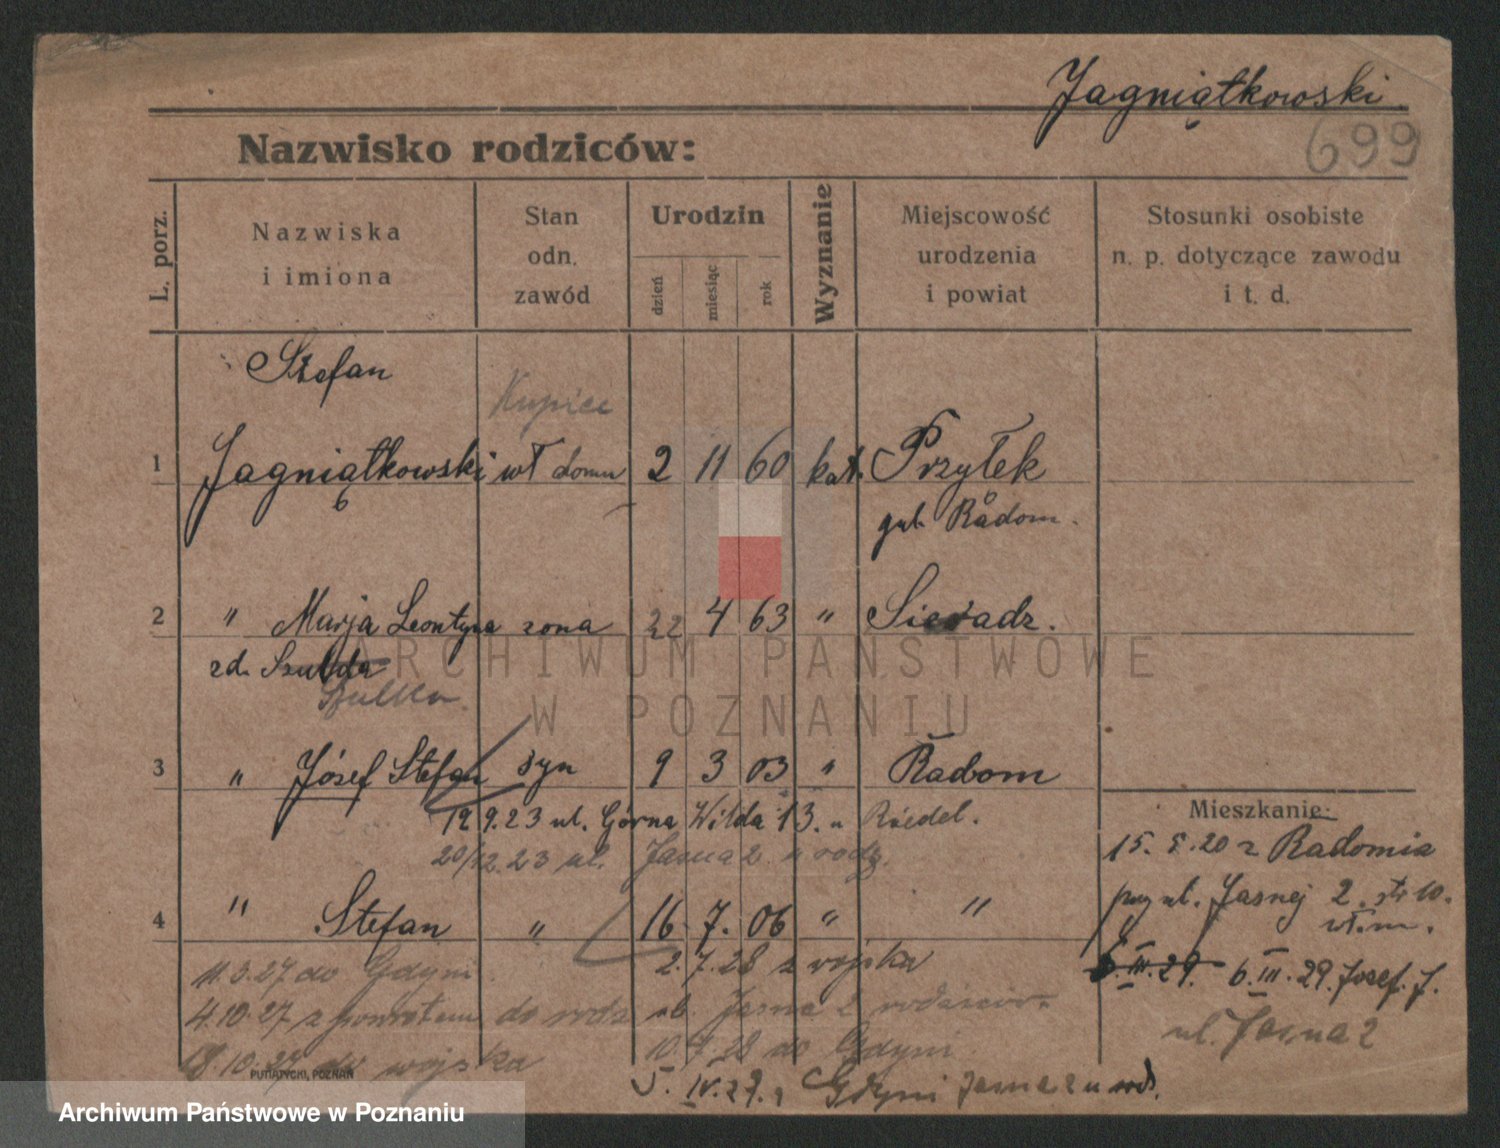 Jagniątkowski
699
Nazwisko rodziców:
L. porz.
Nazwiska
i imiona
Stan
odn.
zawód
Urodzin
dzień
miesiąc
rok
Wyznanie
Miejscowość
urodzenia
i powiat
Stosunki osobiste
n. p. dotyczące zawodu
i t. d.
Stefan
Kupiec
1 Jagniątkowski wł domu 2 11 60 kat. Przyłek
gub. Radom.
2 " Marja Leontyna żona 22 4 63 " Sieradz.
zd. Szulda
Szulka
3 " Józef Stefan syn 9 3 03 " Radom
19 9.23 ul. Górna Wilda 13. u Riedel.
20/12.23 ul. Jasna 2 u rodz.
Mieszkanie:
15. 5. 20 z Radomia
przy ul. Jasnej 2. ptr 10.
wł. m.
4 " Stefan " 16 7. 06 " "
11.3.27 do Gdyni 2.7.28 z wojska
6. III. 29. 6. III. 29. Józef. J.
4.10.27 z powrotem do rodz ul. Jasna 2 rodziców
ul. Jasna 2
18.10.27 do wojska 10.7.28 do Gdyni
5. IV. 29. z Gdyni Jasna 2 u rodz.
PUTIATYCKI, POZNAŃ
ARCHIWUM PAŃSTWOWE
W POZNANIU
Archiwum Państwowe w Poznaniu